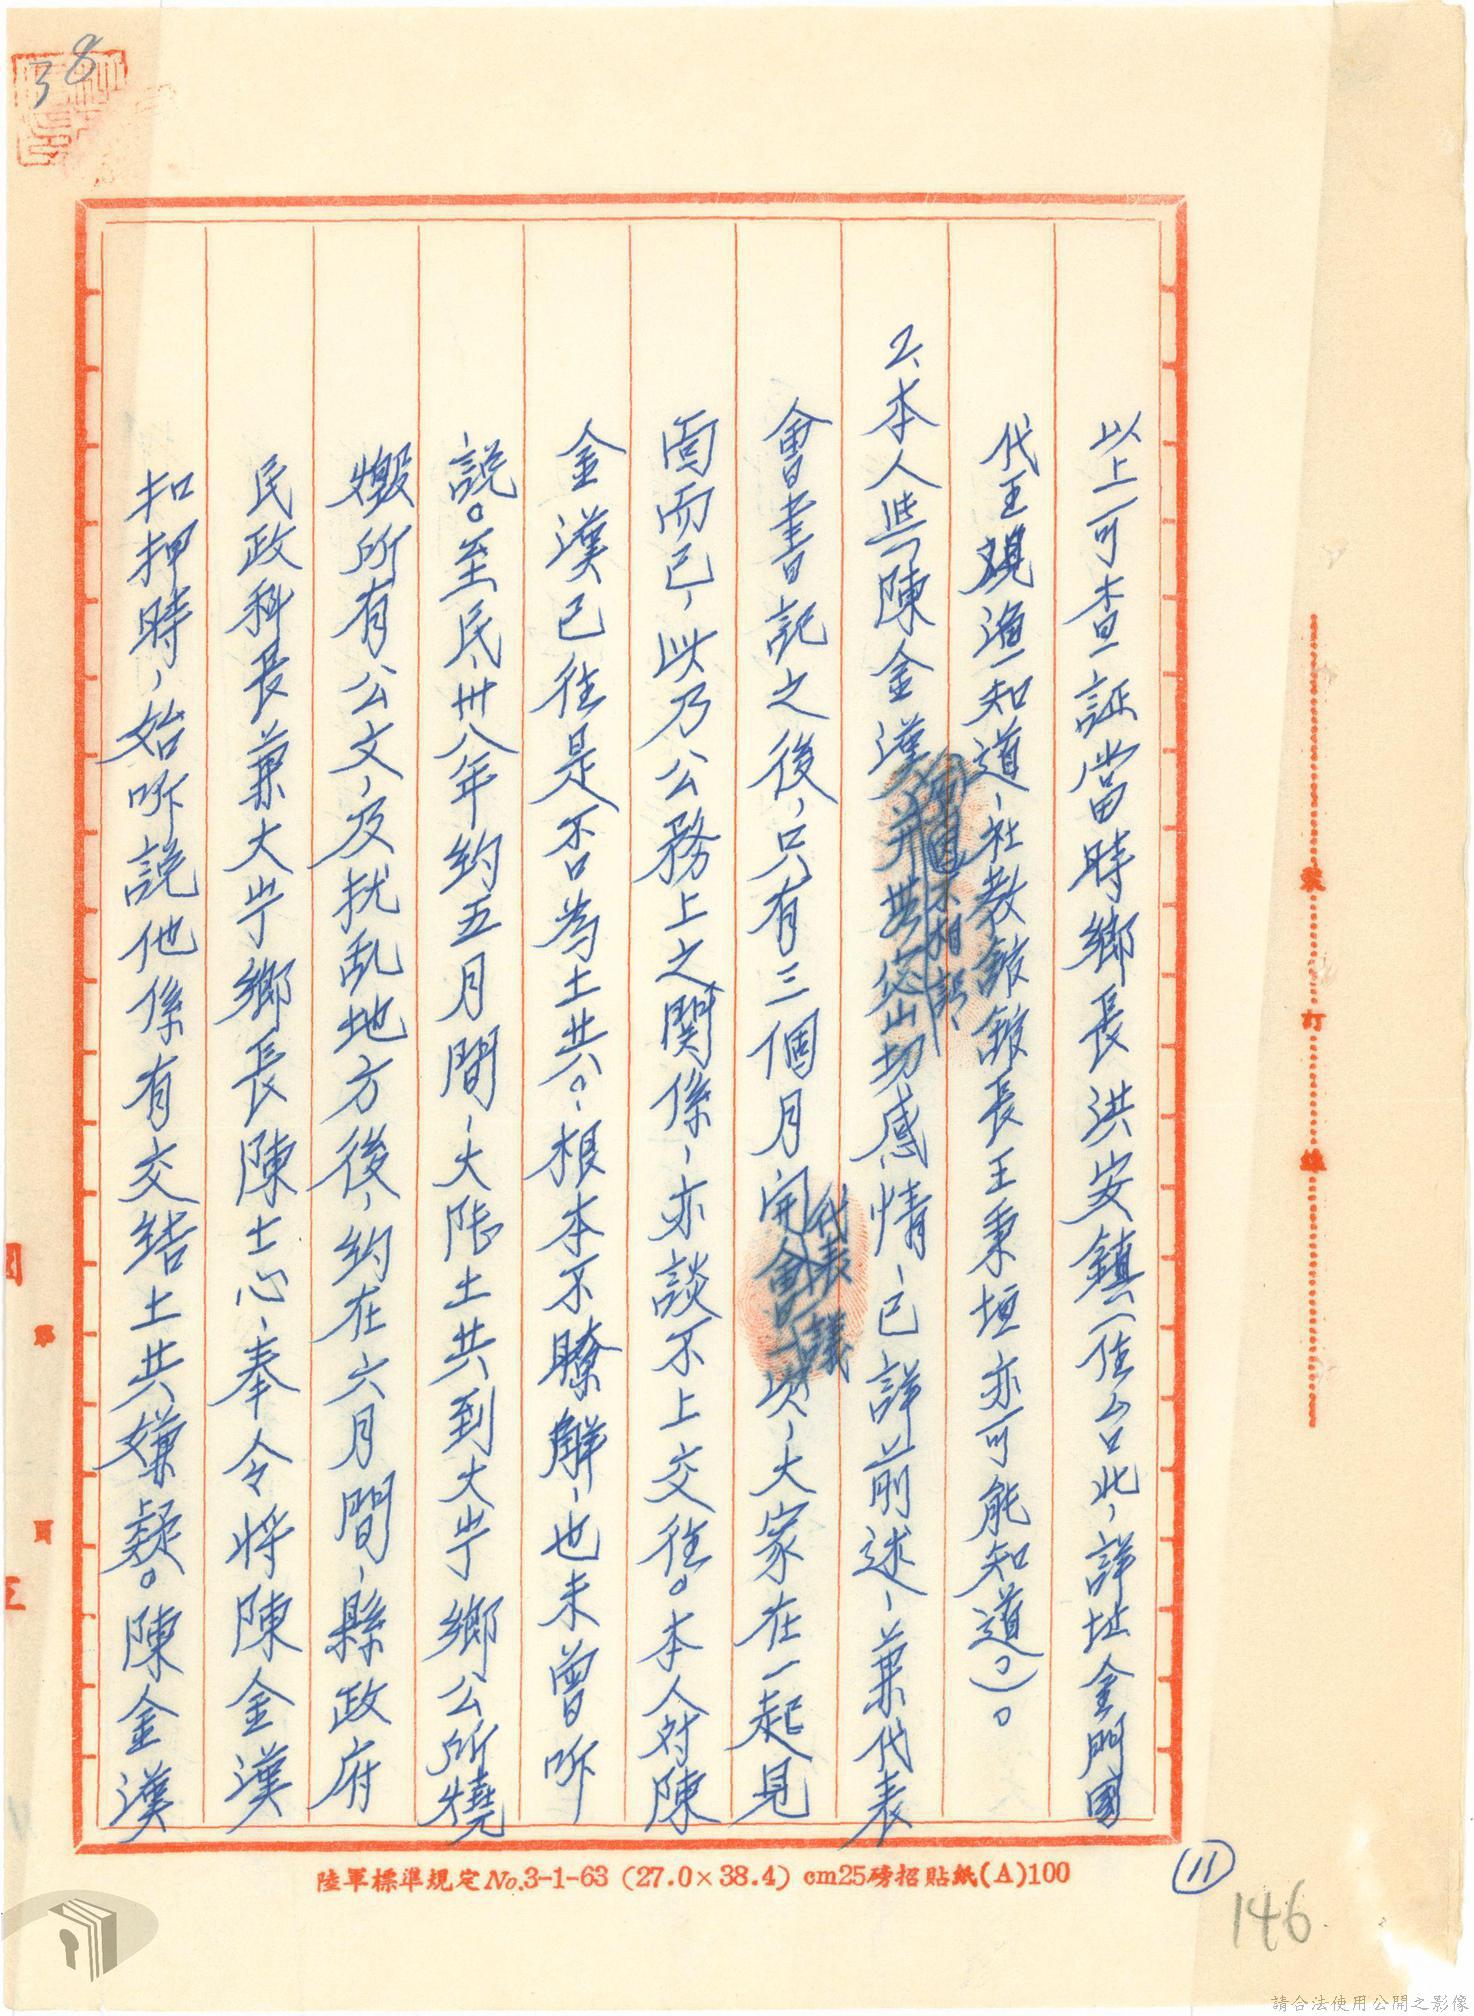 38
以上可查証當時鄉長洪安鎮(住台北、詳址金門國
代王觀漁知道、社教館館長王秉垣亦可能知道)。
2、本人與陳金漢並無密切感情、已詳前述、兼代表
素不相識
會書記之後、只有三個月、開會一次、大家在一起見
代表會議
面而已、此乃公務上之関係、亦談不上交往。本人对陳
金漢已往是否為土共。、根本不瞭解、也未曾听
說。至民、卅八年約五月間、大陸土共到大岞鄉公所燒
燬所有公文、及扰乱地方後、約在六月間、縣政府
民政科長兼大岞鄉長陳士心、奉令将陳金漢
扣押時、始听說他係有交結土共嫌疑。陳金漢
陸軍標準規定No.3-1-63 (27.0×38.4) cm25磅招貼紙(A)100
裝訂線
第 頁
11
146
請合法使用公開之影像